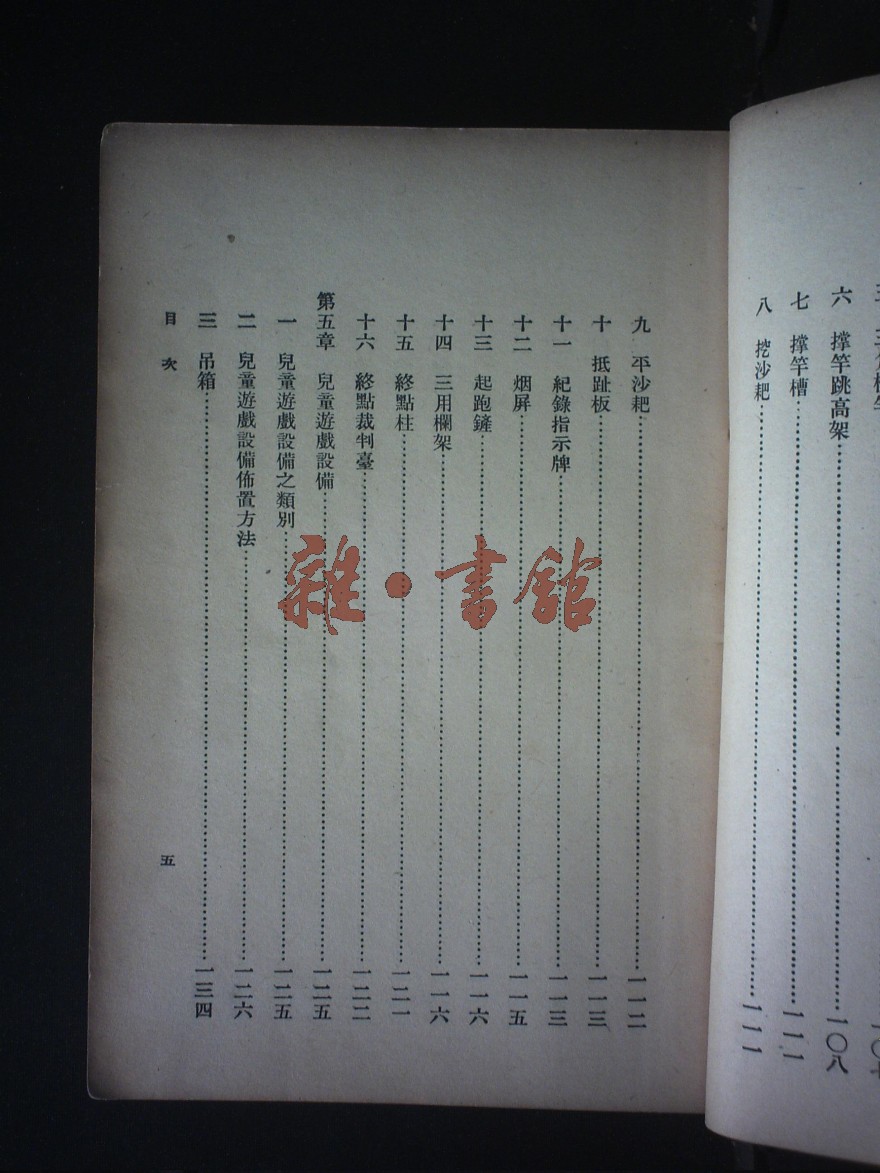 六　撐竿跳高架……一〇八
七　撐竿槽……一一一
八　挖沙耙……一一一
九　平沙耙……一一二
十　抵趾板……一一三
十一　紀錄指示牌……一一三
十二　烟屏……一一五
十三　起跑鏟……一一六
十四　三用欄架……一一六
十五　終點柱……一二一
十六　終點裁判臺……一二二
第五章　兒童遊戲設備……一二五
一　兒童遊戲設備之類別……一二五
二　兒童遊戲設備佈置方法……一二六
三　吊箱……一三四
目次
五
雜·書館